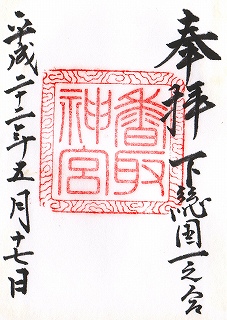 奉拝
下総国一之宮
香取
神宮
平成二十二年五月十七日